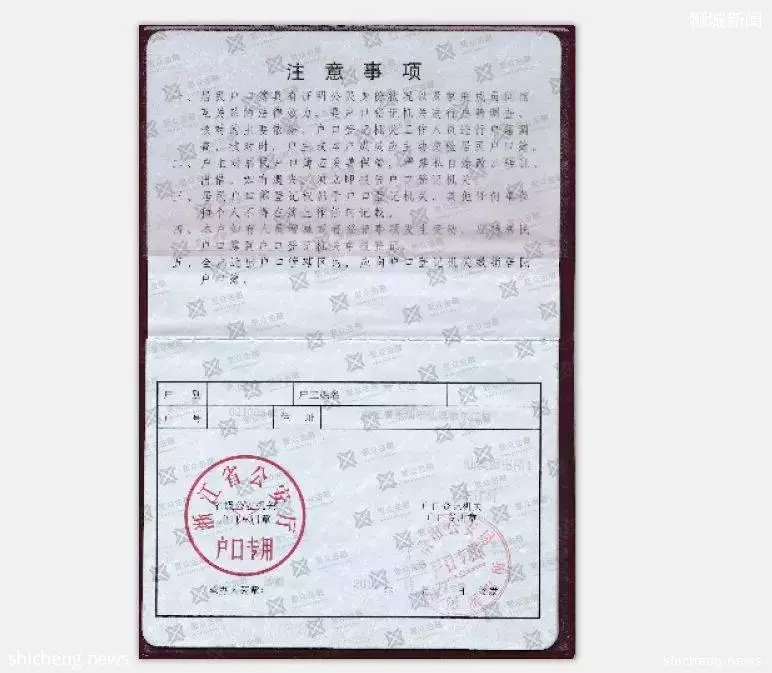 狮城新闻
注意事项
一、居民户口簿具有证明公民身份状况以及家庭成员间相
互关系的法律效力，是户口登记机关进行户籍调查、
核对的主要依据。户口登记机关工作人员进行户籍调
查、核对时，户主或本户成员应主动交验居民户口簿。
二、户主对居民户口簿应妥善保管，严禁私自涂改、转让、
出借。如有遗失，须立即报告户口登记机关。
三、居民户口簿登记权属于户口登记机关，其他任何单位
和个人不得在簿上作任何记载。
四、本户如有人员增减或者登记事项发生变动，应持居民
户口簿到户口登记机关申报登记。
五、全户迁出户口管辖区的，应向户口登记机关缴销居民
户口簿。
户 别 户主姓名
户 号 住 址
浙江省公安厅
户口专用
省级公安机关
户口登记机关
户口专用章
承办人签章：
年 月 日 签发
聚众金融
shicheng news
shicheng news